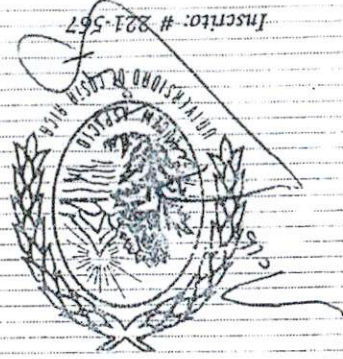 UNIVERSIDAD DE COSTA RICA
LUCEM ASPICIO
Inscrito: # 821-567